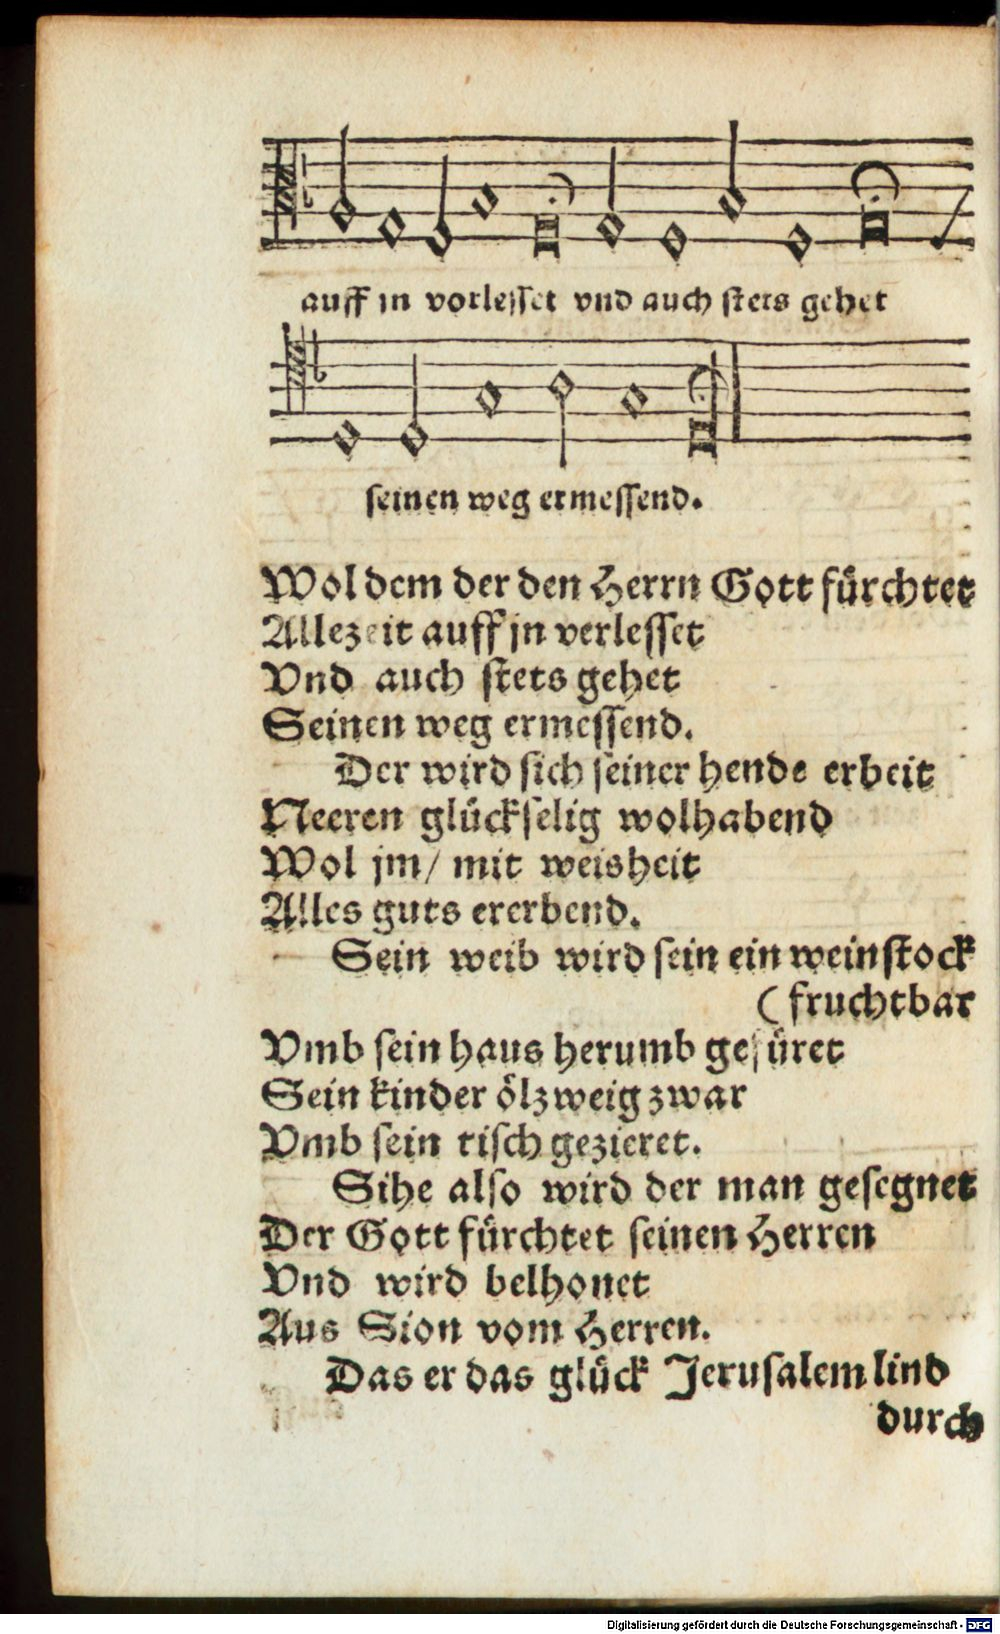 auff jn vorlesset vnd auch stets gehet
seinen weg ermessend.
Wol dem der den Herrn Gott fürchtet
Allezeit auff jn verlesset
Vnd auch stets gehet
Seinen weg ermessend.
Der wird sich seiner hende erbeit
Neeren glückselig wolhabend
Wol jm/ mit weisheit
Alles guts ererbend.
Sein weib wird sein ein weinstock
(fruchtbar
Vmb sein haus herumb gefüret
Sein kinder ölzweig zwar
Vmb sein tisch gezieret.
Sihe also wird der man gesegnet
Der Gott fürchtet seinen Herren
Vnd wird belhonet
Aus Sion vom Herren.
Das er das glück Jerusalem lind
durch
Digitalisierung gefördert durch die Deutsche Forschungsgemeinschaft - DFG